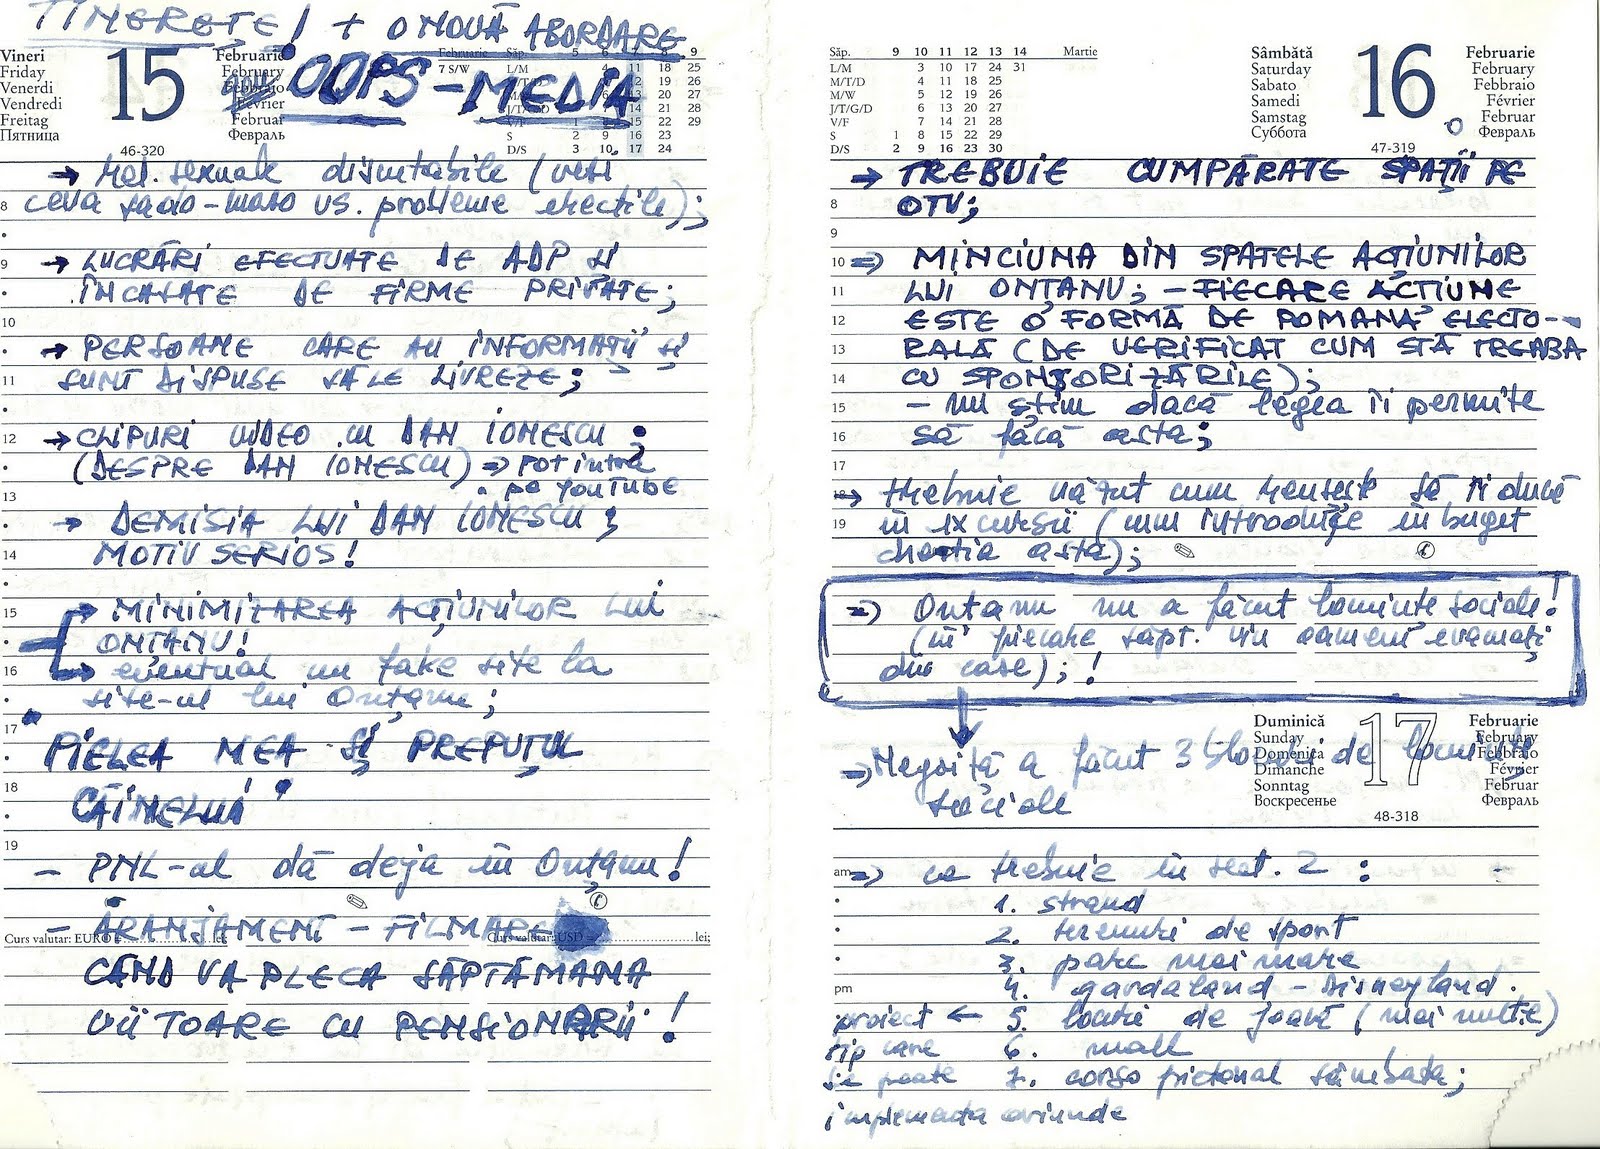 TINEREȚE! + O NOUĂ ABORDARE
Vineri
Friday
Venerdi
Vendredi
Freitag
Пятница
15
46-320
Februarie
February
Febbraio
Février
Februar
Февраль
OOPS - MEDIA
Februarie Săp. 5 6 7 8 9
7 S/W L/M 4 11 18 25
12 19 26
13 20 27
J/T/G/D 14 21 28
V/F 1 8 15 22 29
S 2 9 16 23
D/S 3 10 17 24
→ Rel. sexuale discutabile (vezi
8 ceva sado-maso vs. probleme erectile);
9 → LUCRĂRI EFECTUATE DE ADP și
ÎNCASATE DE FIRME PRIVATE;
10
→ PERSOANE CARE AU INFORMAȚII și
11 SUNT DISPUSE SĂ LE LIVREZE;
12 → CLIPURI VIDEO CU DAN IONESCU;
(DESPRE DAN IONESCU) ⇒ POT intra
13 pe YOUTUBE
→ DEMISIA LUI DAN IONESCU;
14 MOTIV SERIOS!
15 → MINIMIZAREA ACȚIUNILOR LUI
ONȚANU!
16 → eventual un fake site la
site-ul lui Onțanu;
17
PIELEA MEA ȘI PREPUȚUL
18
CÂINELUI
19
- PNL-ul dă deja în Onțanu!
- ARANJAMENT - FILMARE
Curs valutar: EURO = lei; Curs valutar: USD = lei;
CÂND VA PLECA SĂPTĂMÂNA
VIITOARE CU PENSIONARII!
Săp. 9 10 11 12 13 14 Martie
L/M 3 10 17 24 31
M/T/D 4 11 18 25
M/W 5 12 19 26
J/T/G/D 6 13 20 27
V/F 7 14 21 28
S 1 8 15 22 29
D/S 2 9 16 23 30
Sâmbătă
Saturday
Sabato
Samedi
Samstag
Суббота
16
47-319
Februarie
February
Febbraio
Février
Februar
Февраль
→ TREBUIE CUMPĂRATE SPAȚII PE
8 OTV;
9
10 ⇒ MINCIUNA DIN SPATELE ACȚIUNILOR
11 LUI ONȚANU; - FIECARE ACTIUNE
12 ESTE O FORMĂ DE POMANĂ ELECTO-
13 RALĂ (DE VERIFICAT CUM STĂ TREABA
14 CU SPONSORIZĂRILE);
15 - nu știm dacă legea îi permite
16 să facă asta;
17
18 ⇒ trebuie văzut cum reușește să îi ducă
19 în excursii (cum introduce în buget
chestia asta);
⇒ Onțanu nu a făcut locuințe sociale!
(în fiecare săpt. vin oameni evacuați
din case);!
Duminică
Sunday
Domenica
Dimanche
Sonntag
Воскресенье
17
48-318
Februarie
February
Febbraio
Février
Februar
Февраль
⇒ Negoiță a făcut 3 blocuri de locuințe
sociale
am ⇒ ce trebuie în sect. 2:
1. strand
2. terenuri de sport
3. parc mai mare
pm 4. gardaland - Disneyland.
proiect ← 5. locuri de joacă (mai multe)
tip care 6. mall
se poate 7. corso pietonal sâmbata;
implementa oriunde